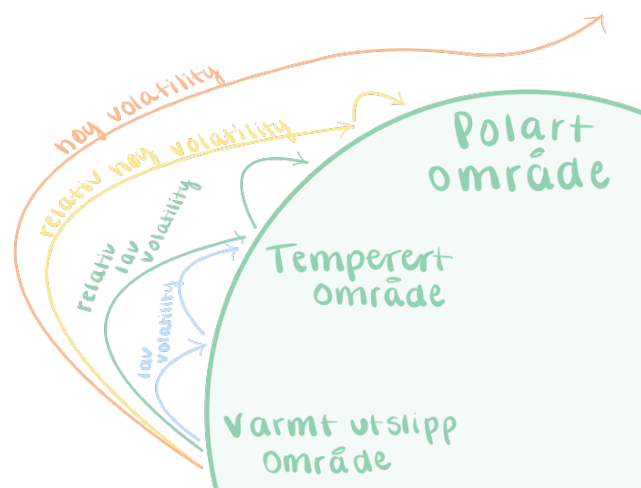 høy volatility
relativ høy volatility
relativ
lav
volatility
lav
volatility
Polart
område
Temperert
område
Varmt utslipp
område